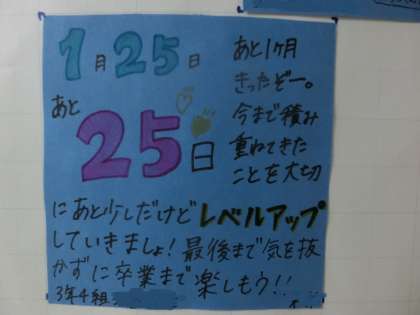 1月25日
あと
25日
あと1ヶ月
きったぞー。
今まで積み
重ねてきた
ことを大切
にあと少しだけどレベルアップ
していきましょ!最後まで気を抜
かずに卒業まで楽しもう!!
3年4組